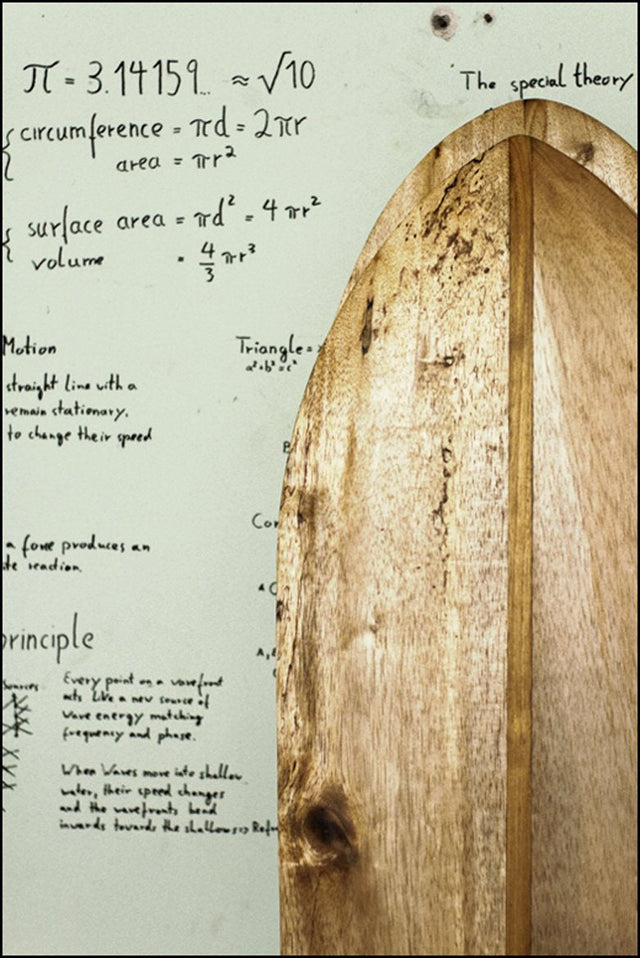 π = 3.14159... ≈ √10
circumference = πd = 2πr
area = πr²
surface area = πd² = 4πr²
volume = 4/3 πr³
The special theory
Motion
straight line with a
remain stationary.
to change their speed
Triangle =
a²+b²=c²
a force produces an
te reaction.
principle
Sources
Every point on a wavefront
acts like a new source of
wave energy matching
frequency and phase.
When Waves move into shallow
water, their speed changes
and the wavefronts bend
inwards towards the shallows => Refr